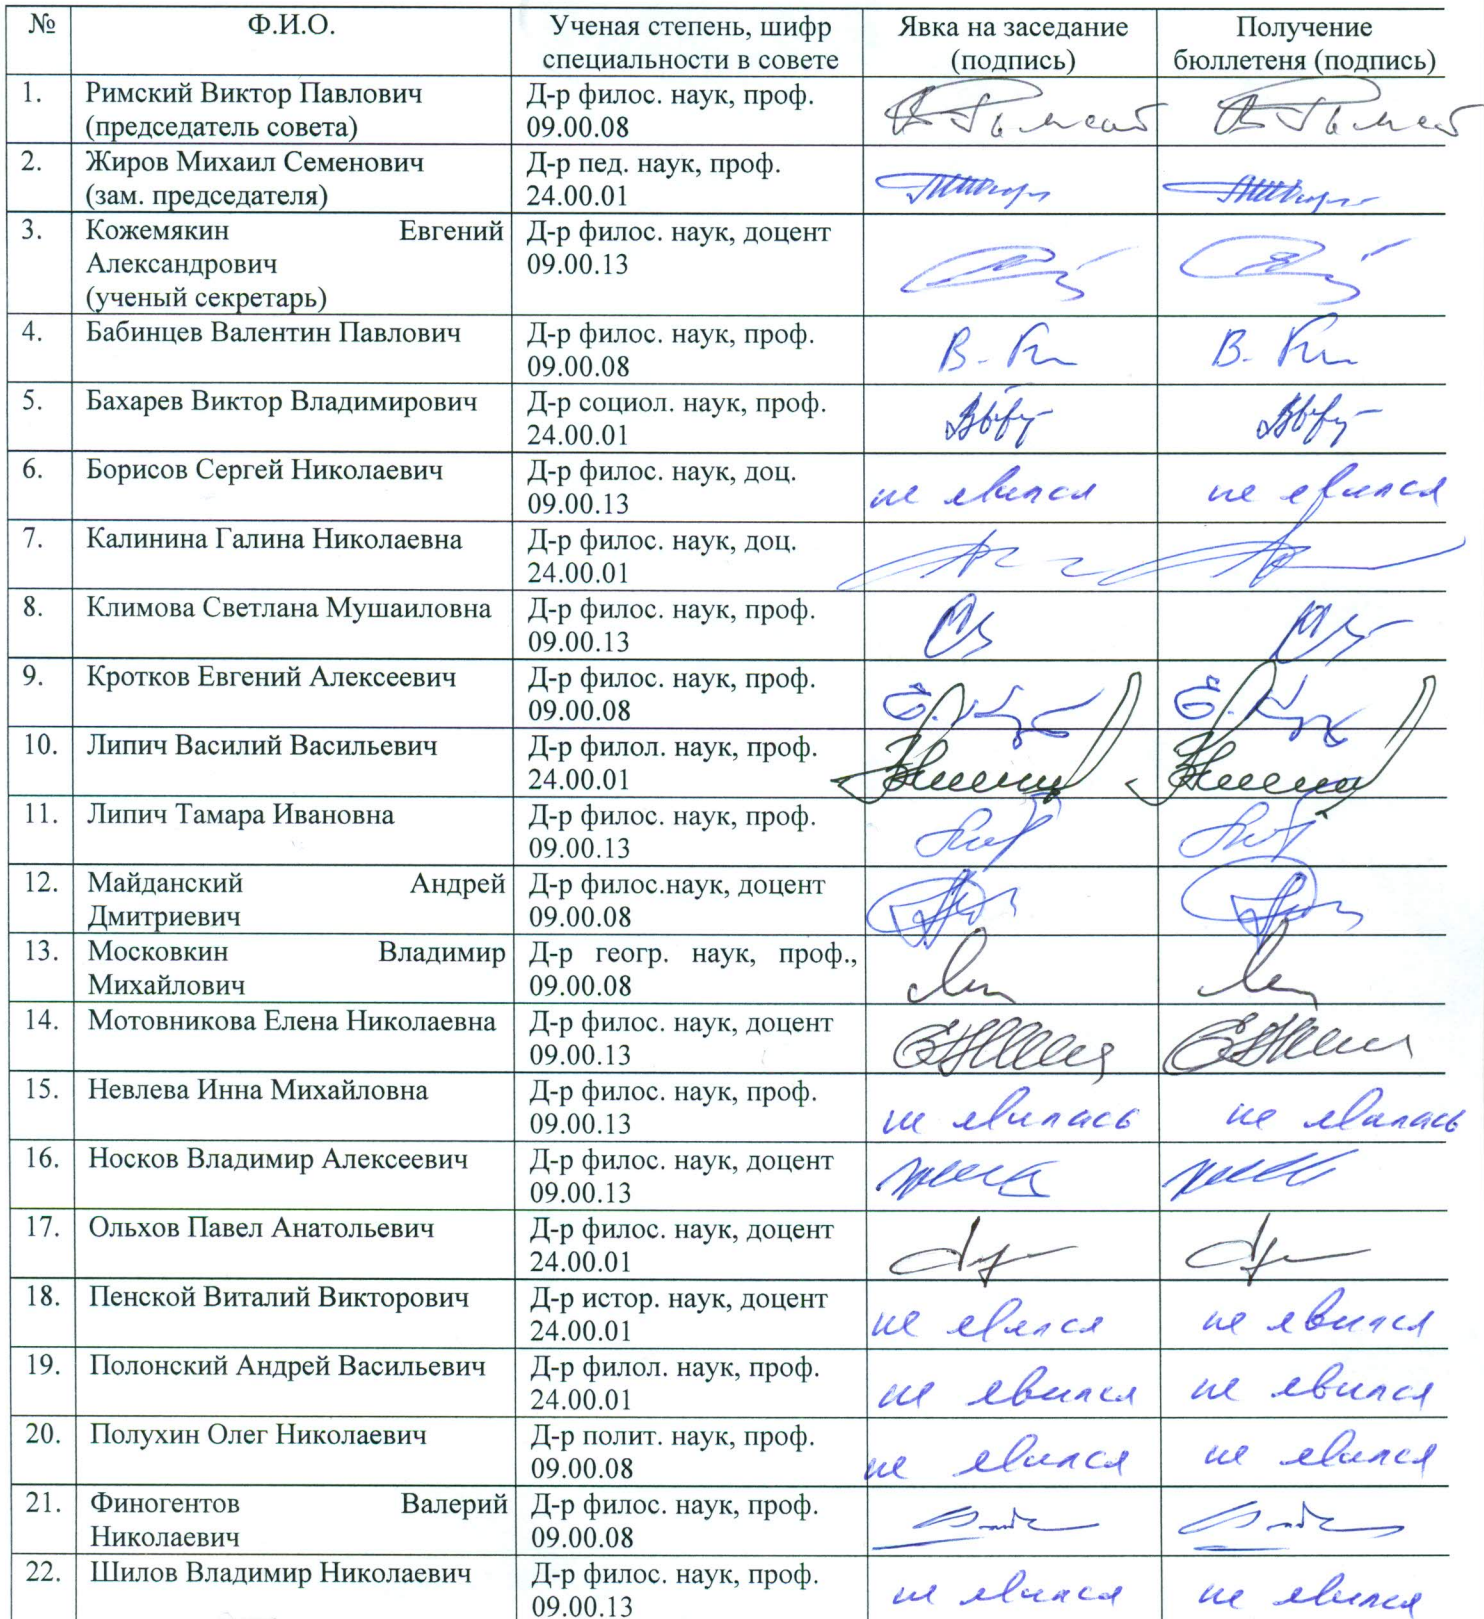 № Ф.И.О. Ученая степень, шифр специальности в совете Явка на заседание (подпись) Получение бюллетеня (подпись)
1. Римский Виктор Павлович Д-р филос. наук, проф.
(председатель совета) 09.00.08
2. Жиров Михаил Семенович Д-р пед. наук, проф.
(зам. председателя) 24.00.01
3. Кожемякин Евгений Д-р филос. наук, доцент
Александрович 09.00.13
(ученый секретарь)
4. Бабинцев Валентин Павлович Д-р филос. наук, проф.
09.00.08
5. Бахарев Виктор Владимирович Д-р социол. наук, проф.
24.00.01
6. Борисов Сергей Николаевич Д-р филос. наук, доц.
09.00.13 не явился не явился
7. Калинина Галина Николаевна Д-р филос. наук, доц.
24.00.01
8. Климова Светлана Мушаиловна Д-р филос. наук, проф.
09.00.13
9. Кротков Евгений Алексеевич Д-р филос. наук, проф.
09.00.08
10. Липич Василий Васильевич Д-р филол. наук, проф.
24.00.01
11. Липич Тамара Ивановна Д-р филос. наук, проф.
09.00.13
12. Майданский Андрей Д-р филос.наук, доцент
Дмитриевич 09.00.08
13. Московкин Владимир Д-р геогр. наук, проф.,
Михайлович 09.00.08
14. Мотовникова Елена Николаевна Д-р филос. наук, доцент
09.00.13
15. Невлева Инна Михайловна Д-р филос. наук, проф.
09.00.13 не явилась не явилась
16. Носков Владимир Алексеевич Д-р филос. наук, доцент
09.00.13
17. Ольхов Павел Анатольевич Д-р филос. наук, доцент
24.00.01
18. Пенской Виталий Викторович Д-р истор. наук, доцент
24.00.01 не явился не явился
19. Полонский Андрей Васильевич Д-р филол. наук, проф.
24.00.01 не явился не явился
20. Полухин Олег Николаевич Д-р полит. наук, проф.
09.00.08 не явился не явился
21. Финогентов Валерий Д-р филос. наук, проф.
Николаевич 09.00.08
22. Шилов Владимир Николаевич Д-р филос. наук, проф.
09.00.13 не явился не явился